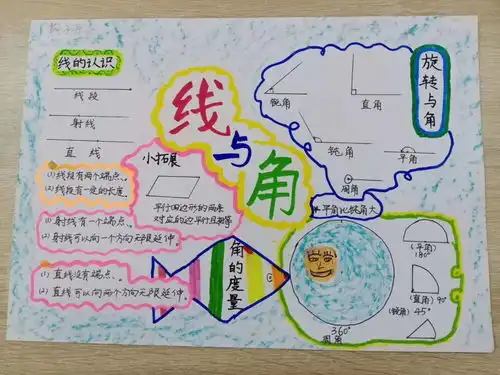 线的认识
线段
射线
直线
(1) 线段有两个端点、。
(2) 线段有一定的长度
(1) 射线有一个端点、。
(2) 射线可以向一个方向无限延伸。
(1) 直线没有端点、。
(2) 直线可以向两个方向无限延伸。
线与角
小拓展
平行四边形的两条
对应的边平行且相等
角的度量
旋转与角
锐角
直角
钝角
平角
周角
平角比锐角大
360°
周角
(平角)
180°
(直角) 90°
(锐角) 45°